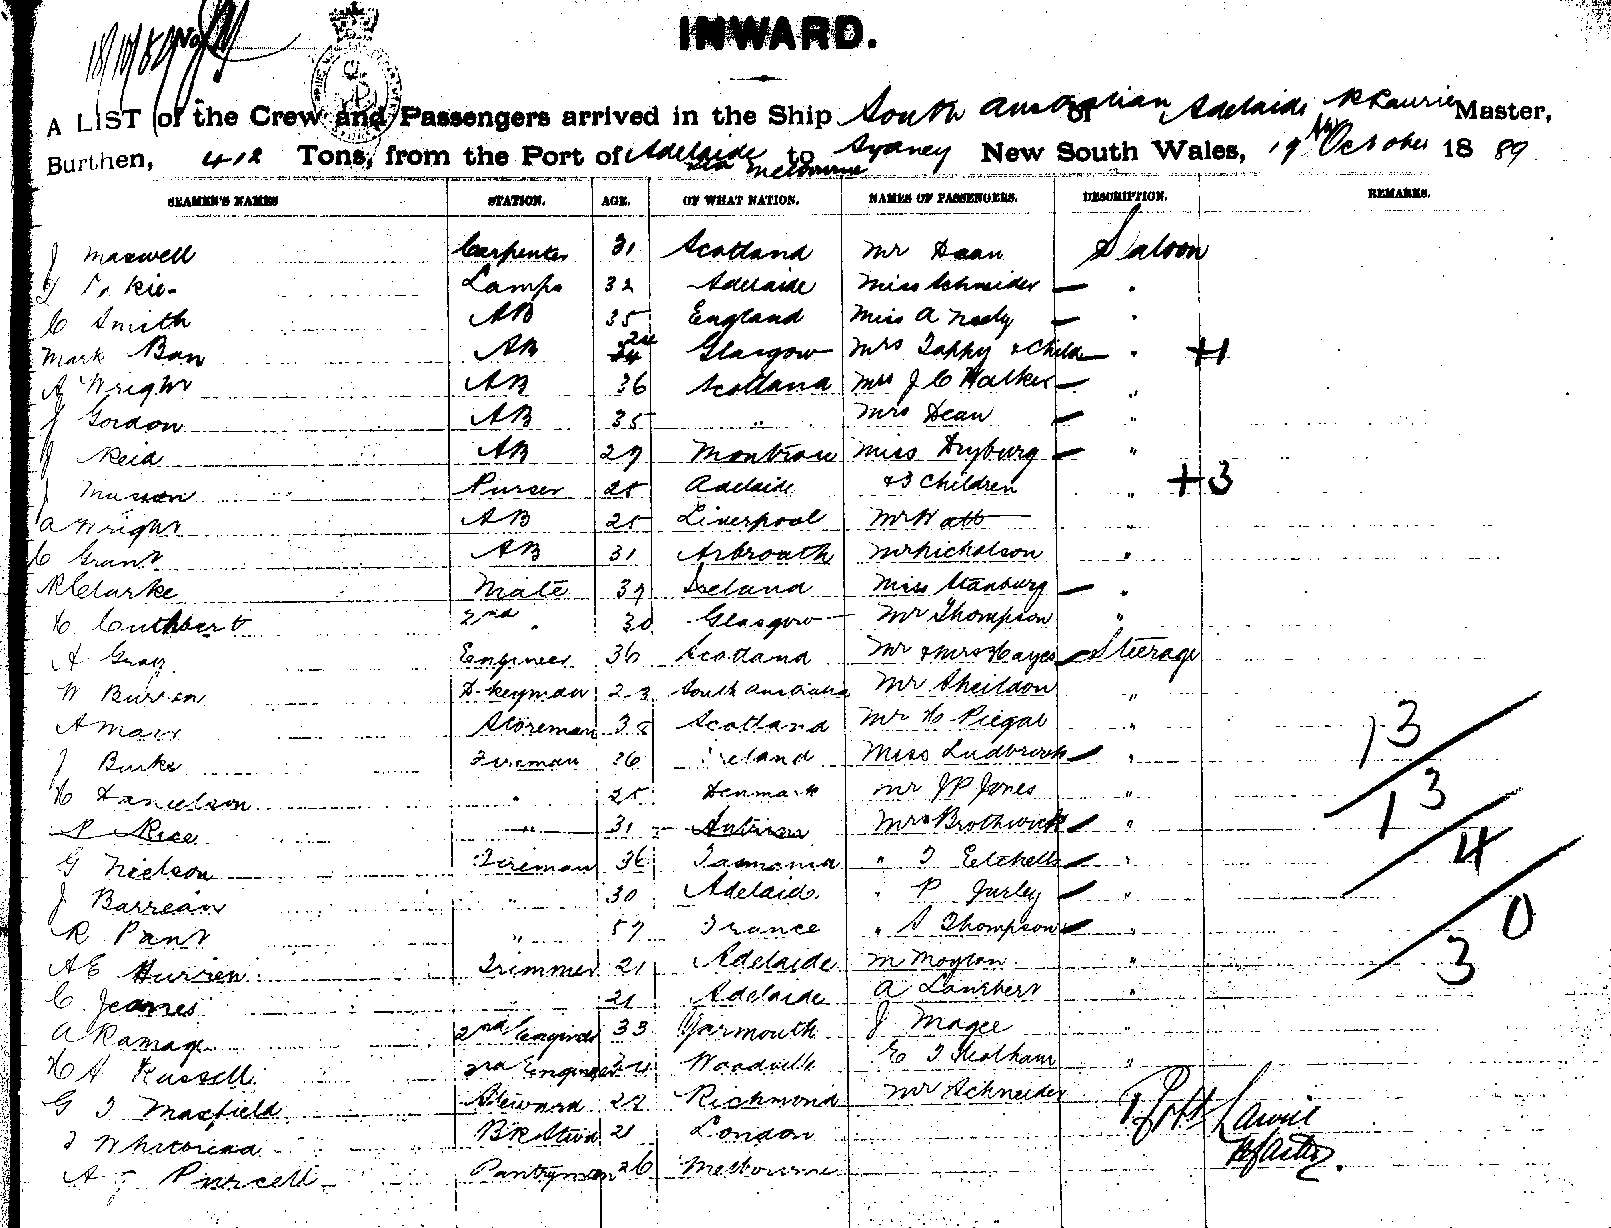 INWARD.
A LIST of the Crew and Passengers arrived in the Ship South Australian of Adelaide Master,
Burthen, 412 Tons, from the Port of Adelaide to Sydney New South Wales, 19th October 18 89
via Melbourne
SEAMEN'S NAMES STATION. AGE. OF WHAT NATION. NAMES OF PASSENGERS. DESCRIPTION. REMARKS.
J Maxwell Carpenter 31 Scotland Mr Dean Saloon
Lamps 32 Adelaide Miss Schneider — "
C Smith AB 35 England Miss A Neely — "
Mark Ban AB Glasgow Mrs Tapky & Child — " +1
A Wright AB 36 Scotland Mrs J C Walker — "
J Gordon AB 35 " Mrs Dean — "
J Reid AB 29 Montrose Miss Dryburg — "
J Purser 25 Adelaide & 3 Children " +3
A Wright AB 25 Liverpool Mr Watt "
C Grant AB 31 Arbroath Mr Nicholson "
R Clarke Mate 39 Ireland Miss Stanburg — "
H Cuthbert 2nd " 30 Glasgow Mr Thompson "
A Gray Engineer 36 Scotland Mr & Mrs Hayes — Steerage
W Burren D-keyman 23 South Australia Mr Sheildon "
A Marr Storeman 38 Scotland Mr H Piegal "
J Burke Fireman 26 Ireland Miss Ludbrook — " 13
H Danielson " 25 Denmark Mr J P Jones " 13
P Rice " 31 Antrim Mrs Brothwick — " 4
G Nielson Fireman 36 Tasmania " T Etchells — "
J Barrean " 30 Adelaide " P Jurley — " 0
R Pant " 57 France " S Thompson — " 3
A E Hurren Trimmer 21 Adelaide M Moylan "
C Jeanes " 21 Adelaide A Lambert "
A Ramage 2nd Engineer 33 Yarmouth J Magee "
H A Russell 3rd Engineer 24 Woodville E T "
G T Maxfield Steward 27 Richmond Mr Schneider
T Whitehead 21 London
A J Purcell Pantryman 26 Melbourne
Master.